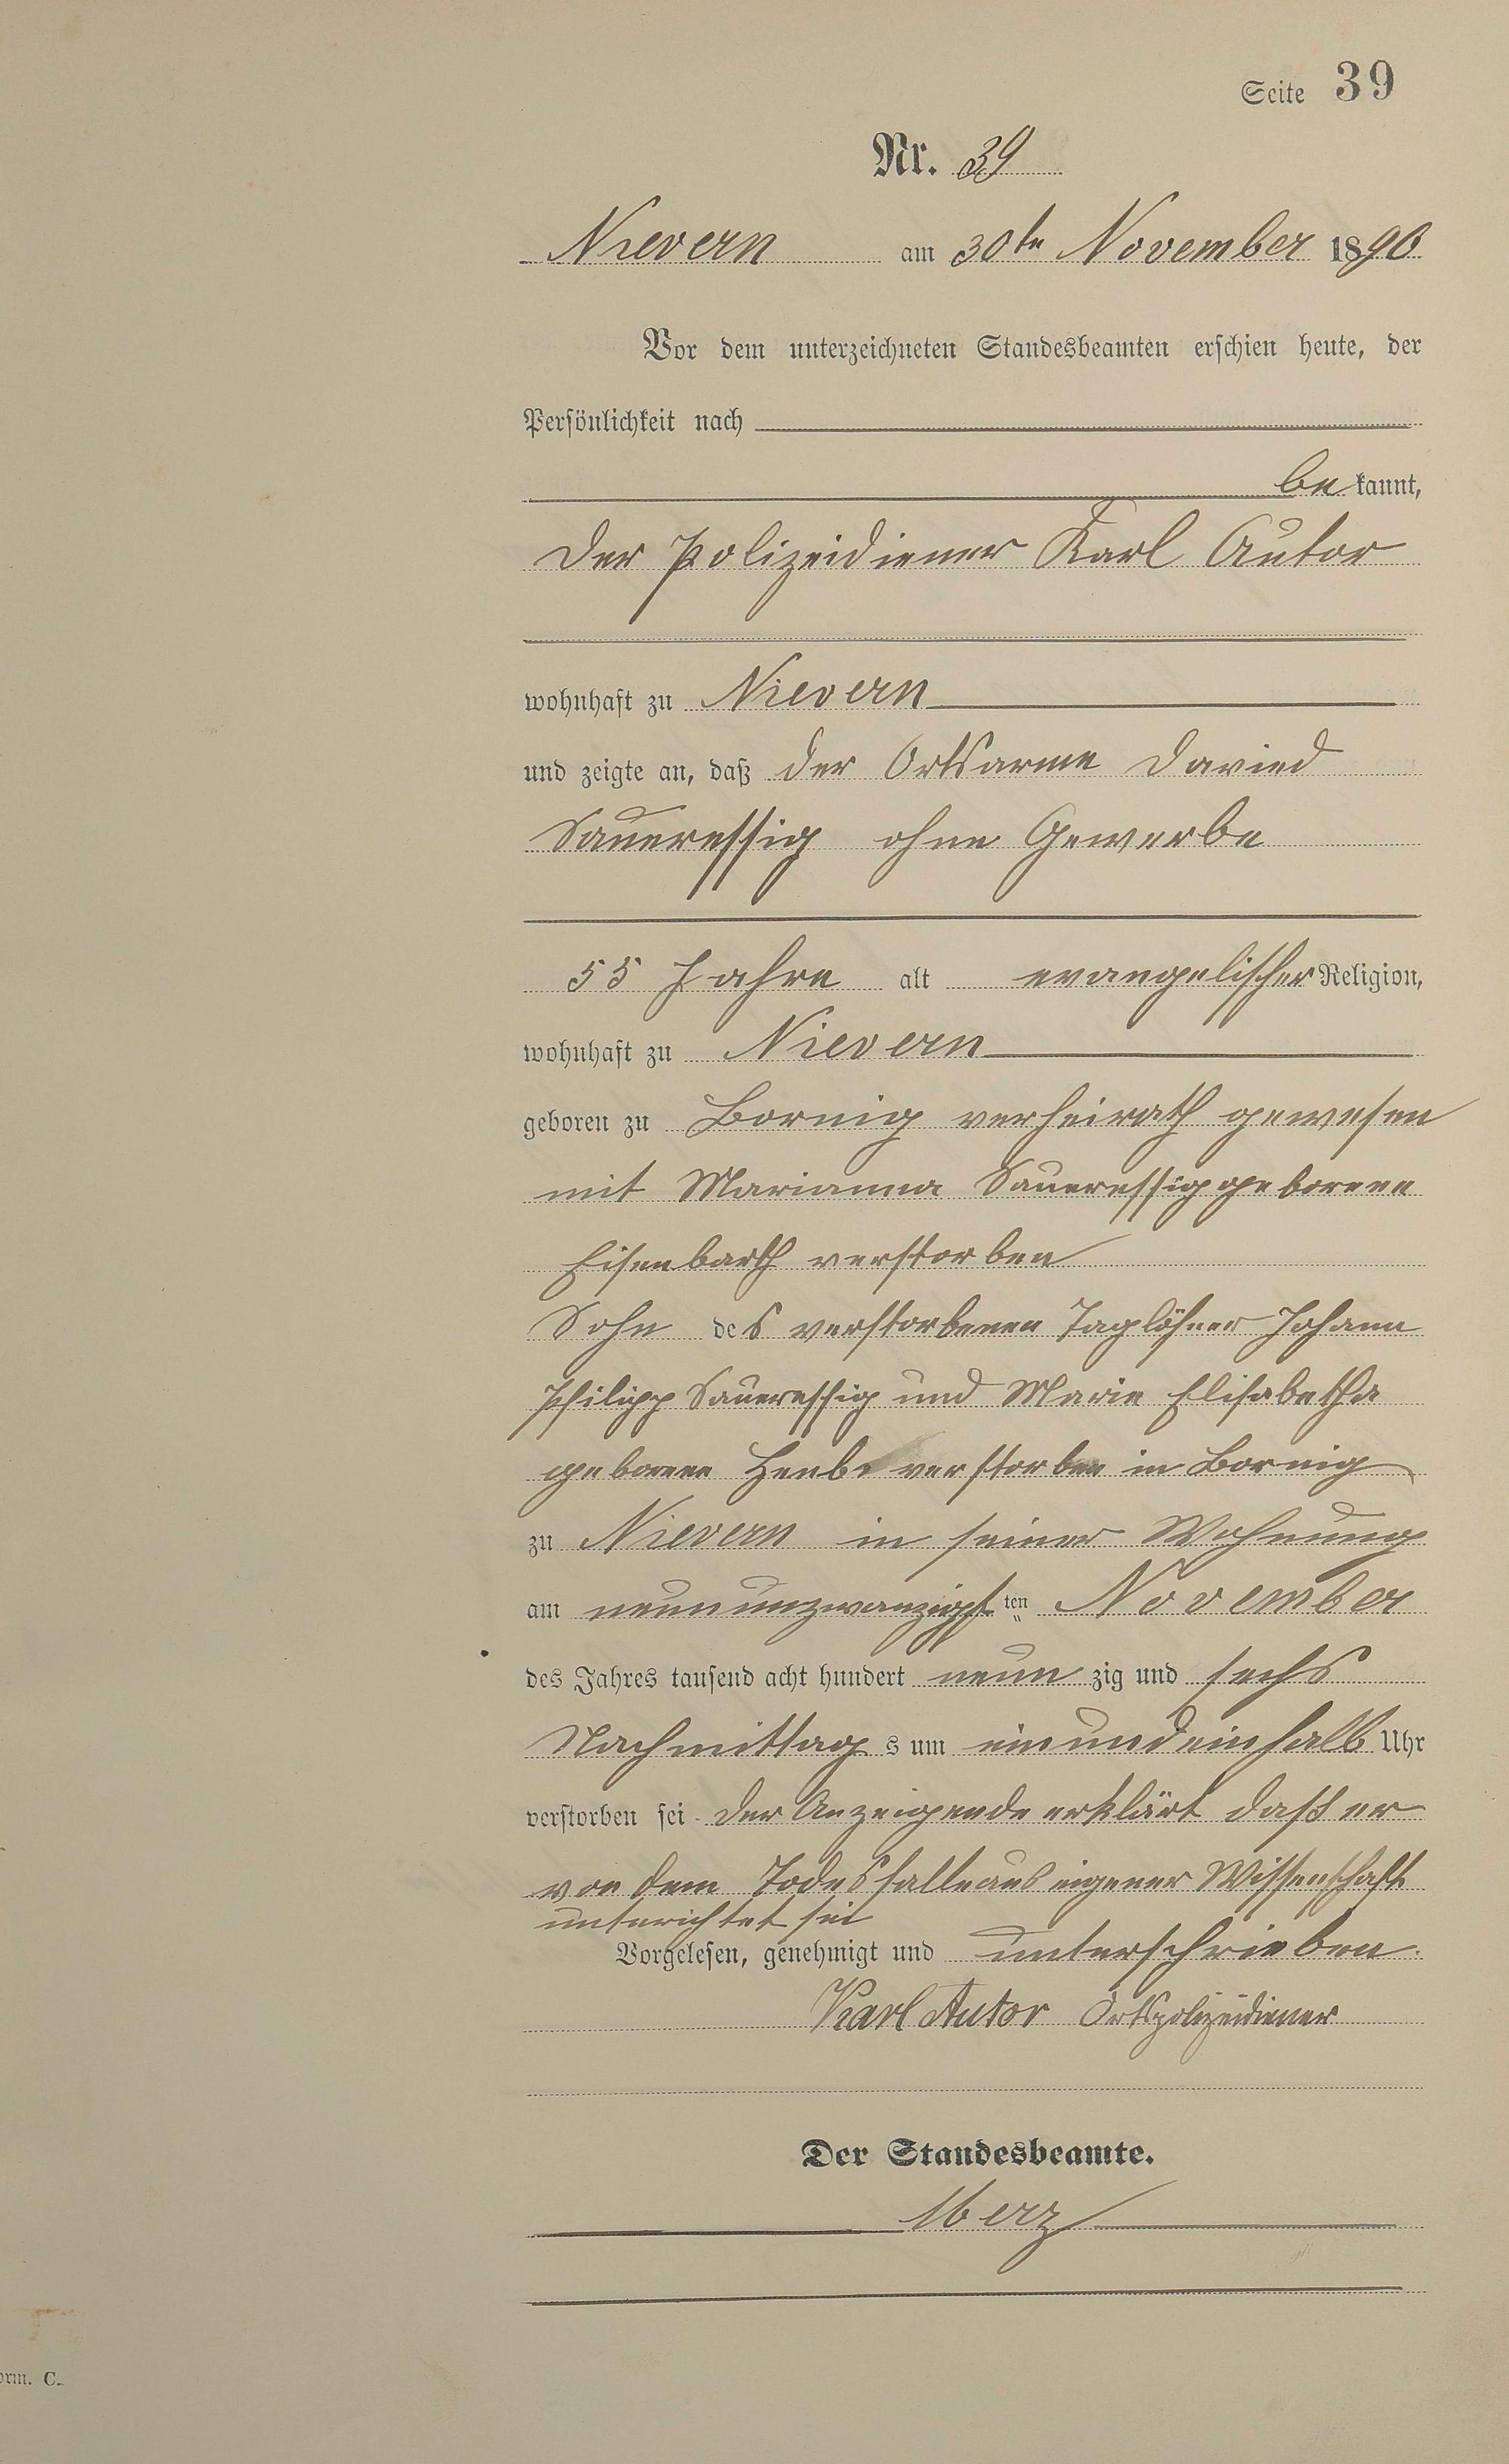 Seite 39
Nr. 39
Nievern am 30te November 1896
Vor dem unterzeichneten Standesbeamten erschien heute, der
Persönlichkeit nach
be kannt,
der Polizeidiener Karl Autor
wohnhaft zu Nievern
und zeigte an, daß der Ortsarme Davied
Saueressig ohne Gewerbe
55 Jahre alt evangelischer Religion,
wohnhaft zu Nievern
geboren zu Bornig verheirath gewesen
mit Marianna Saueressig geborene
Eisenbarth verstorben
Sohn des verstorbenen Taglöhner Johann
Philipp Saueressig und Marie Elisabetha
geborene verstorben in Bornig
zu Nievern in seiner Wohnung
am neunundzwanzigsten November
des Jahres tausend acht hundert neun zig und sechs
Nachmittag s um einundeinhalb Uhr
verstorben sei. der Anzeigende erklärt daß er
von dem Todesfalle aus eigener Wissenschaft
unterichtet sei
Vorgelesen, genehmigt und unterschrieben.
Karl Autor Ortspolizeidiener
Der Standesbeamte.
Merz
orm. C.